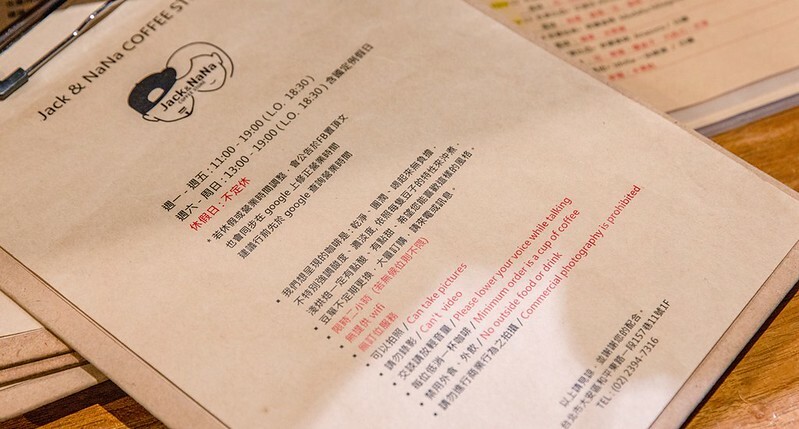 Jack & NaNa COFFEE ST
Jack&NaNa
週一 - 週五：11:00 - 19:00 ( L.O. 18:30 )
週六 - 周日：13:00 - 19:00 ( L.O. 18:30 ) 含國定例假日
休假日：不定休
* 若休假或營業時間調整，會公告於FB置頂文
也會同步在 google 上修正營業時間
建議行前先於 google 查詢營業時間
* 我們想呈現的咖啡是：乾淨，圓潤，喝起來無負擔，
不特別強調酸度、濃淡度，依照每隻豆子的特性來沖煮，
淺烘焙一定有點酸，有點甜，希望您能喜歡這樣的風格。
豆單不定期更換，大量訂購，請來電或訊息。
* 限時二小時（若無候位則不限）
* 無提供 wifi
* 無訂位服務
* 可以拍照 / Can take pictures
* 請勿錄影 / Can't video
* 交談請放輕音量 / Please lower your voice while talking
* 每位低消一杯咖啡 / Minimum order is a cup of coffee
* 禁用外食、外飲 / No outside food or drink
* 請勿進行商業行為之拍攝 / Commercial photography is prohibited
以上請見諒，並謝謝您的配合。
台北市大安區和平東路一段157巷11號1F
TEL : (02) 2394-7316